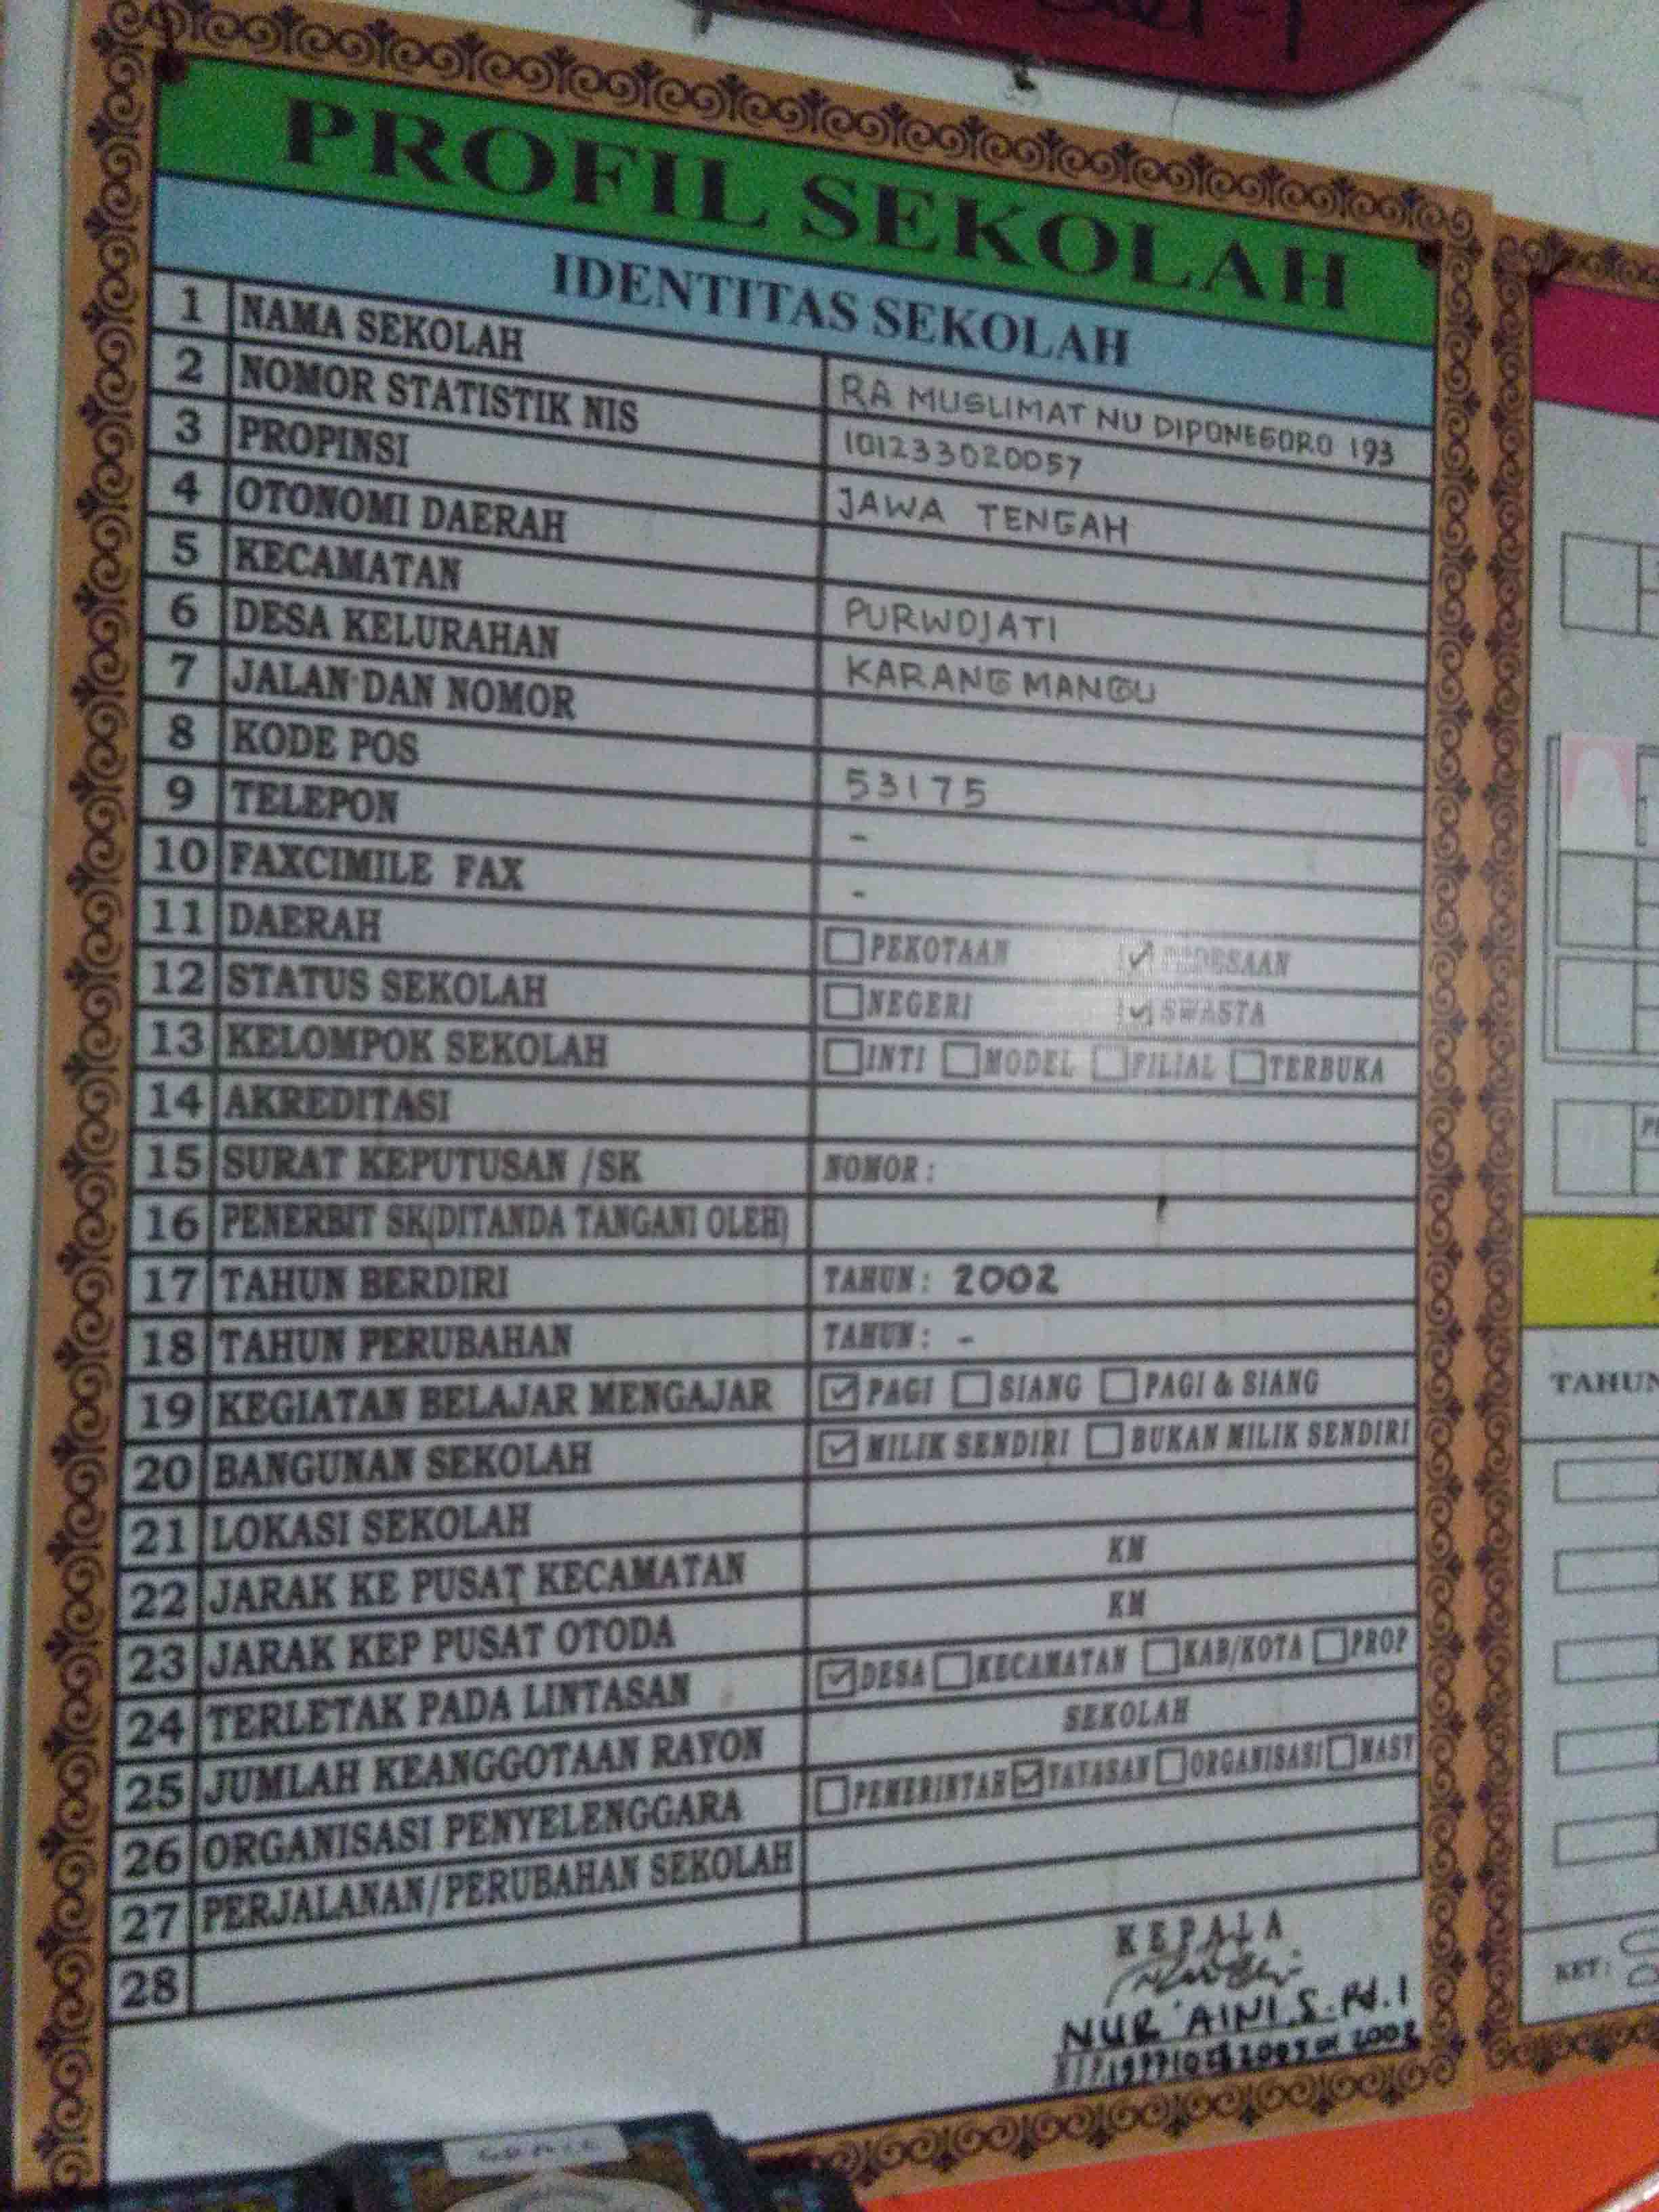 PROFIL SEKOLAH
IDENTITAS SEKOLAH
1 NAMA SEKOLAH RA MUSLIMAT NU DIPONEGORO 193
2 NOMOR STATISTIK NIS 101233020057
3 PROPINSI JAWA TENGAH
4 OTONOMI DAERAH
5 KECAMATAN PURWOJATI
6 DESA KELURAHAN KARANG MANGU
7 JALAN DAN NOMOR
8 KODE POS 53175
9 TELEPON -
10 FAXCIMILE FAX -
11 DAERAH PEKOTAAN ✓ PEDESAAN
12 STATUS SEKOLAH NEGERI ✓ SWASTA
13 KELOMPOK SEKOLAH INTI MODEL FILIAL TERBUKA
14 AKREDITASI
15 SURAT KEPUTUSAN /SK NOMOR :
16 PENERBIT SK(DITANDA TANGANI OLEH)
17 TAHUN BERDIRI TAHUN : 2002
18 TAHUN PERUBAHAN TAHUN : -
19 KEGIATAN BELAJAR MENGAJAR ✓ PAGI SIANG PAGI & SIANG
20 BANGUNAN SEKOLAH ✓ MILIK SENDIRI BUKAN MILIK SENDIRI
21 LOKASI SEKOLAH
22 JARAK KE PUSAT KECAMATAN KM
23 JARAK KEP PUSAT OTODA KM
24 TERLETAK PADA LINTASAN ✓ DESA KECAMATAN KAB/KOTA PROP
25 JUMLAH KEANGGOTAAN RAYON SEKOLAH
26 ORGANISASI PENYELENGGARA PEMERINTAH ✓ YAYASAN ORGANISASI MASY
27 PERJALANAN/PERUBAHAN SEKOLAH
28
KEPALA
NUR 'AINI S.Pd.I
TAHUN
KET :